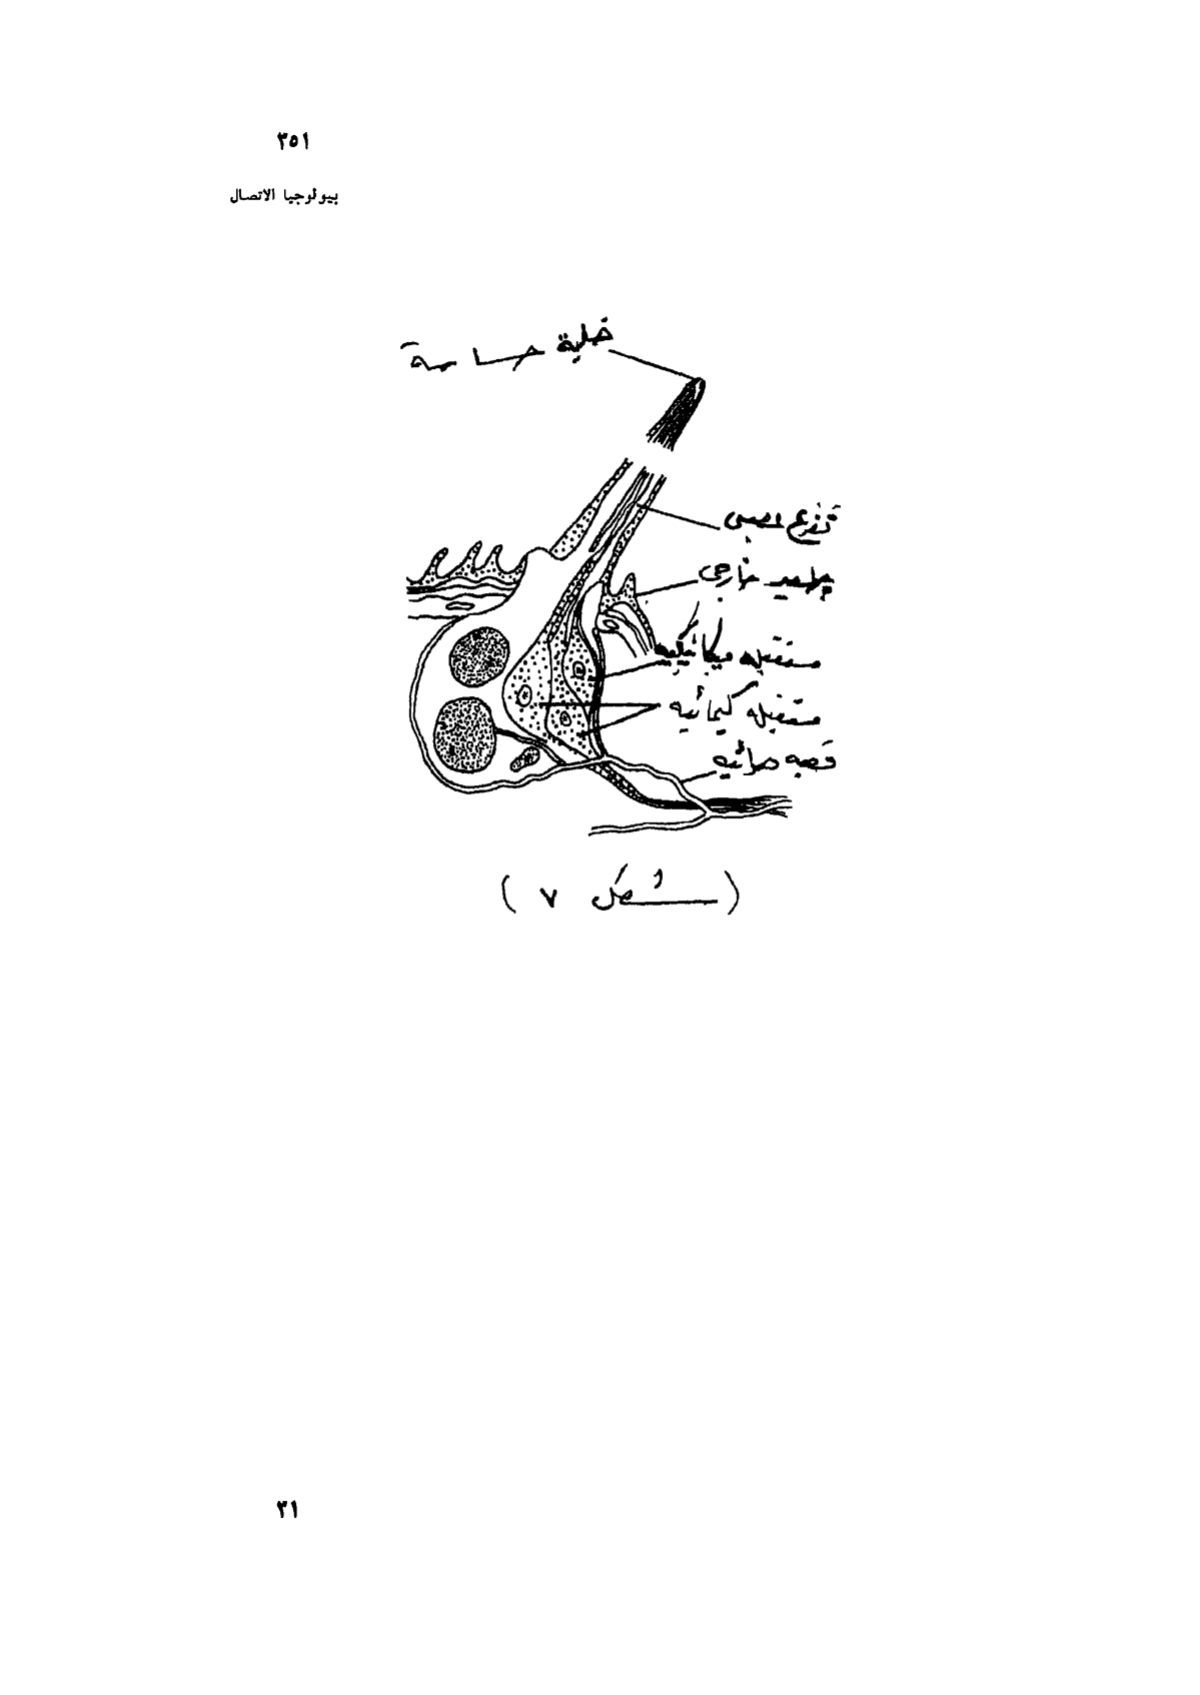 ٣٥١
بيولوجيا الاتصال
خلية حساسة
تفرع عصبي
جليد خارجي
مستقبله ميكانيكيه
مستقبله كيمائيه
قصبه هوائيه
( شكل ٧ )
٣١